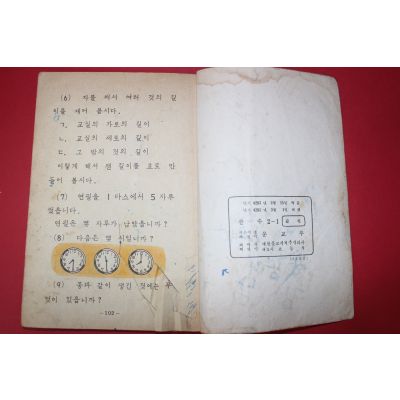 (6) 자를 써서 여러 것의 길
이를 재어 봅시다.
ㄱ. 교실의 가로의 길이
ㄴ. 교실의 세로의 길이
ㄷ. 그 밖의 것의 길이
이렇게 해서 잰 길이를 표로 만
들어 봅시다.
(7) 연필을 1 다스에서 5 자루
썼읍니다.
연필은 몇 자루가 남았읍니까?
(8) 다음은 몇 시입니까?
(9) 공과 같이 생긴 것에는 무
엇이 있읍니까?
—102—
산 수 2-1
문 교 부